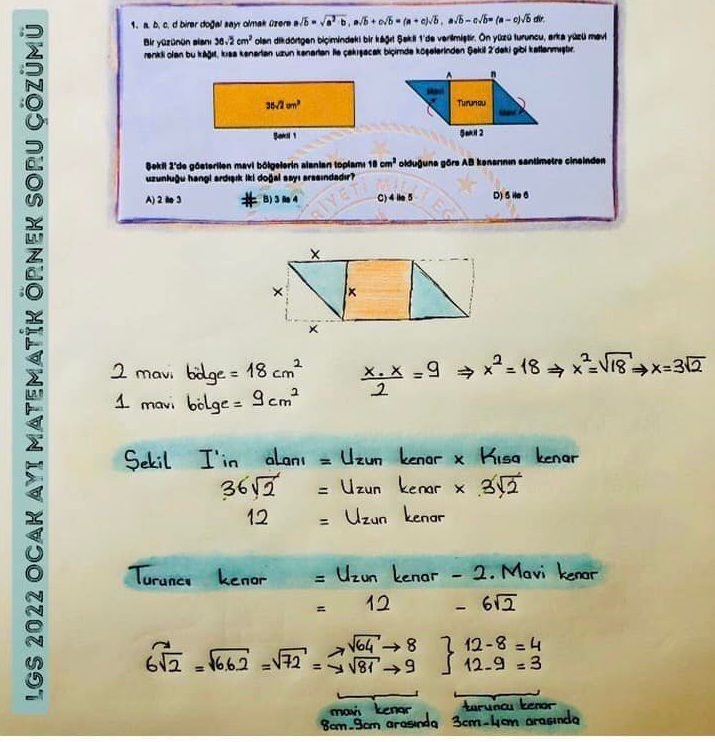 LGS 2022 OCAK AYI MATEMATİK ÖRNEK SORU ÇÖZÜMÜ
1. a, b, c, d birer doğal sayı olmak üzere a√b = √a² b, a√b + c√b = (a + c)√b, a√b – c√b= (a – c)√b dir.
Bir yüzünün alanı 36√2 cm² olan dikdörtgen biçimindeki bir kâğıt Şekil 1'de verilmiştir. Ön yüzü turuncu, arka yüzü mavi
renkli olan bu kâğıt, kısa kenarları uzun kenarları ile çakışacak biçimde köşelerinden Şekil 2'deki gibi katlanmıştır.
A B
36√2 cm²
Mavi Turuncu Mavi
Şekil 1 Şekil 2
Şekil 2'de gösterilen mavi bölgelerin alanları toplamı 18 cm² olduğuna göre AB kenarının santimetre cinsinden
uzunluğu hangi ardışık iki doğal sayı arasındadır?
A) 2 ile 3 # B) 3 ile 4 C) 4 ile 5 D) 5 ile 6
x
x x
x
2 mavi bölge = 18 cm²
1 mavi bölge = 9 cm²
x . x / 2 = 9 ⇒ x² = 18 ⇒ x² = √18 → x = 3√2
Şekil I'in alanı = Uzun kenar x Kısa kenar
36√2 = Uzun kenar x 3√2
12 = Uzun kenar
Turuncu kenar = Uzun kenar - 2. Mavi kenar
= 12 - 6√2
6√2 = √6.6.2 = √72 = → √64 → 8 } 12-8 = 4
→ √81 → 9 12-9 = 3
mavi kenar
8cm-9cm arasında
turuncu kenar
3cm-4cm arasında